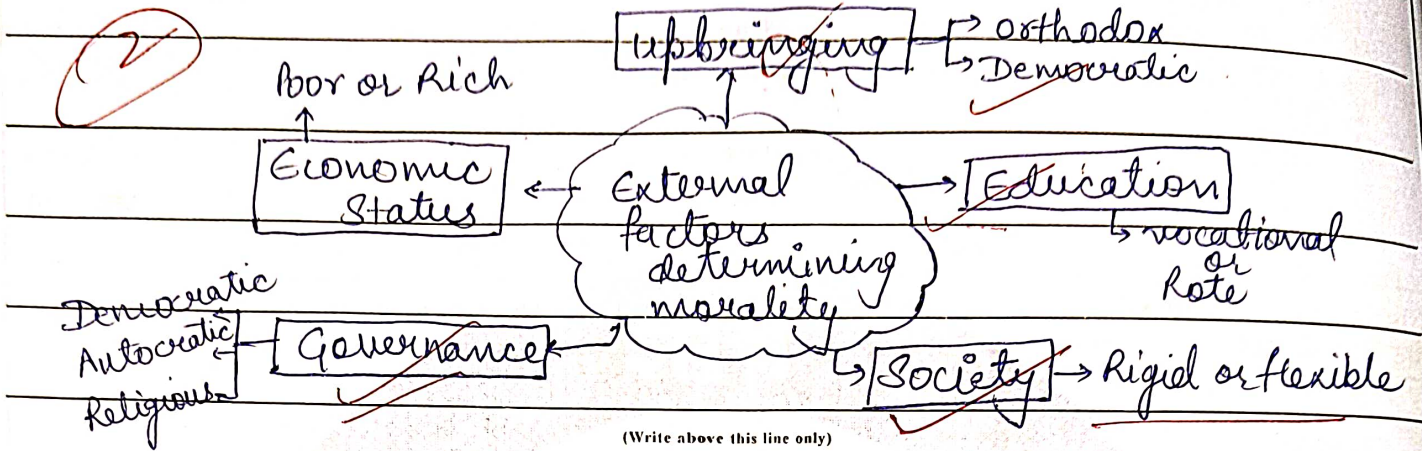 2
Upbringing
Orthodox
Democratic
Poor or Rich
Economic
Status
External
factors
determining
morality
Education
vocational
or
Rote
Democratic
Autocratic
Religious
Governance
Society
Rigid or flexible
(Write above this line only)